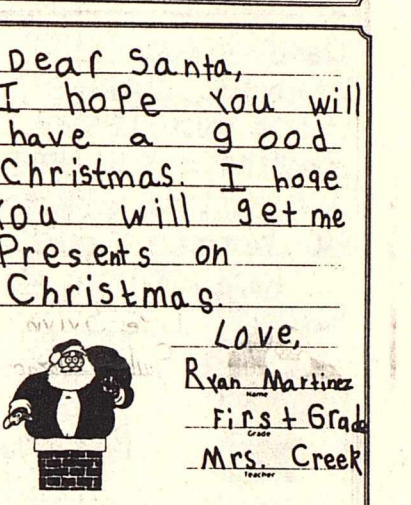 Dear Santa,
I hope You will
have a good
Christmas. I hoqe
You will get me
Presents on
Christmas.
Love,
Ryan Martinez
Name
First Grade
Grade
Mrs. Creek
Teacher